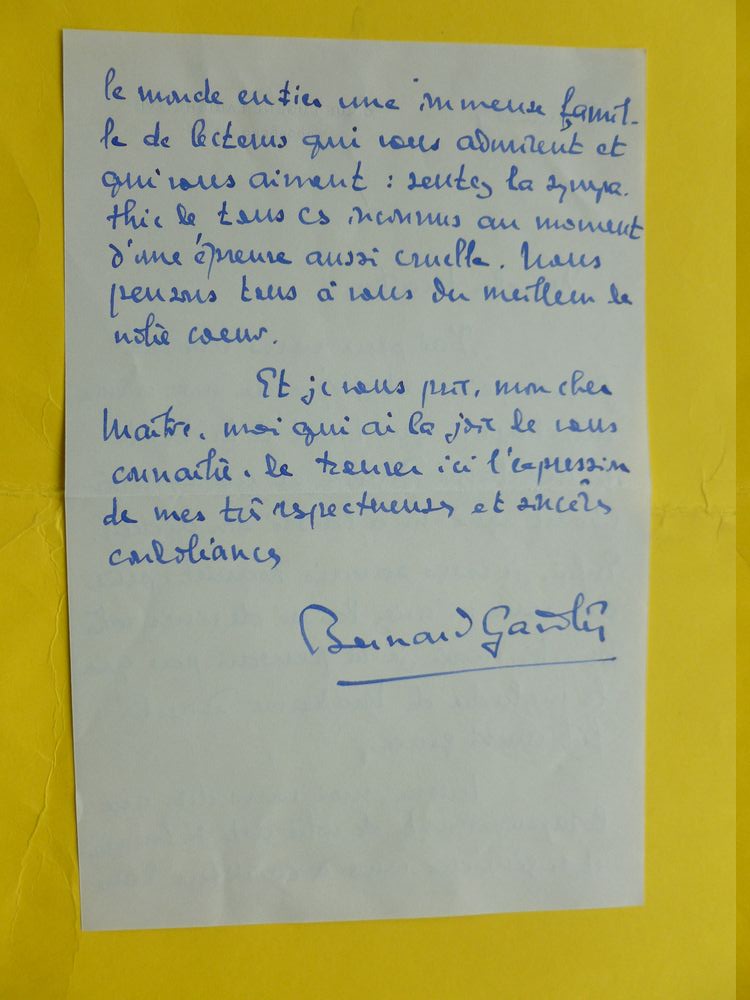 le monde entier une immense famil-
le de lecteurs qui vous admirent et
qui vous aiment : sentez la sympa-
thie de tous ces inconnus au moment
d'une épreuve aussi cruelle. Nous
pensons tous à vous du meilleur de
notre coeur.
Et je vous prie, mon cher
Maître, moi qui ai la joie de vous
connaître, de trouver ici l'expression
de mes très respectueuses et sincères
condoléances
Bernard